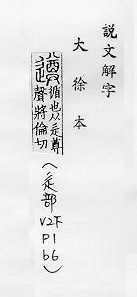 説文解字
大徐本
遵循也从辵尊
聲將倫切
（辵部
V2下
P1
b6）